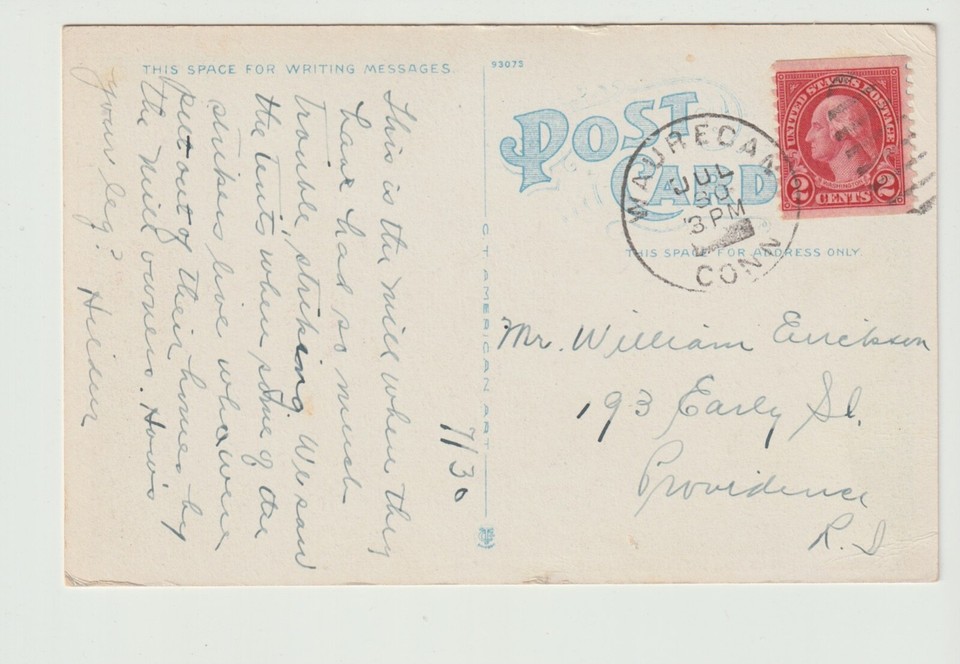 THIS SPACE FOR WRITING MESSAGES.
93075
POST
CARD
UNITED STATES POSTAGE
WASHINGTON
2 CENTS 2
WAUREGAN
JUL
30
3 PM
CONN
THIS SPACE FOR ADDRESS ONLY.
CT AMERICAN ART
7/30
This is the mill when they
have had so much
trouble, striking. We saw
the tents when some of the
strikers live who were
put out of their homes by
the mill owners. How's
your leg?
Mr. William Erickson
193 Early St.
Providence
R.I